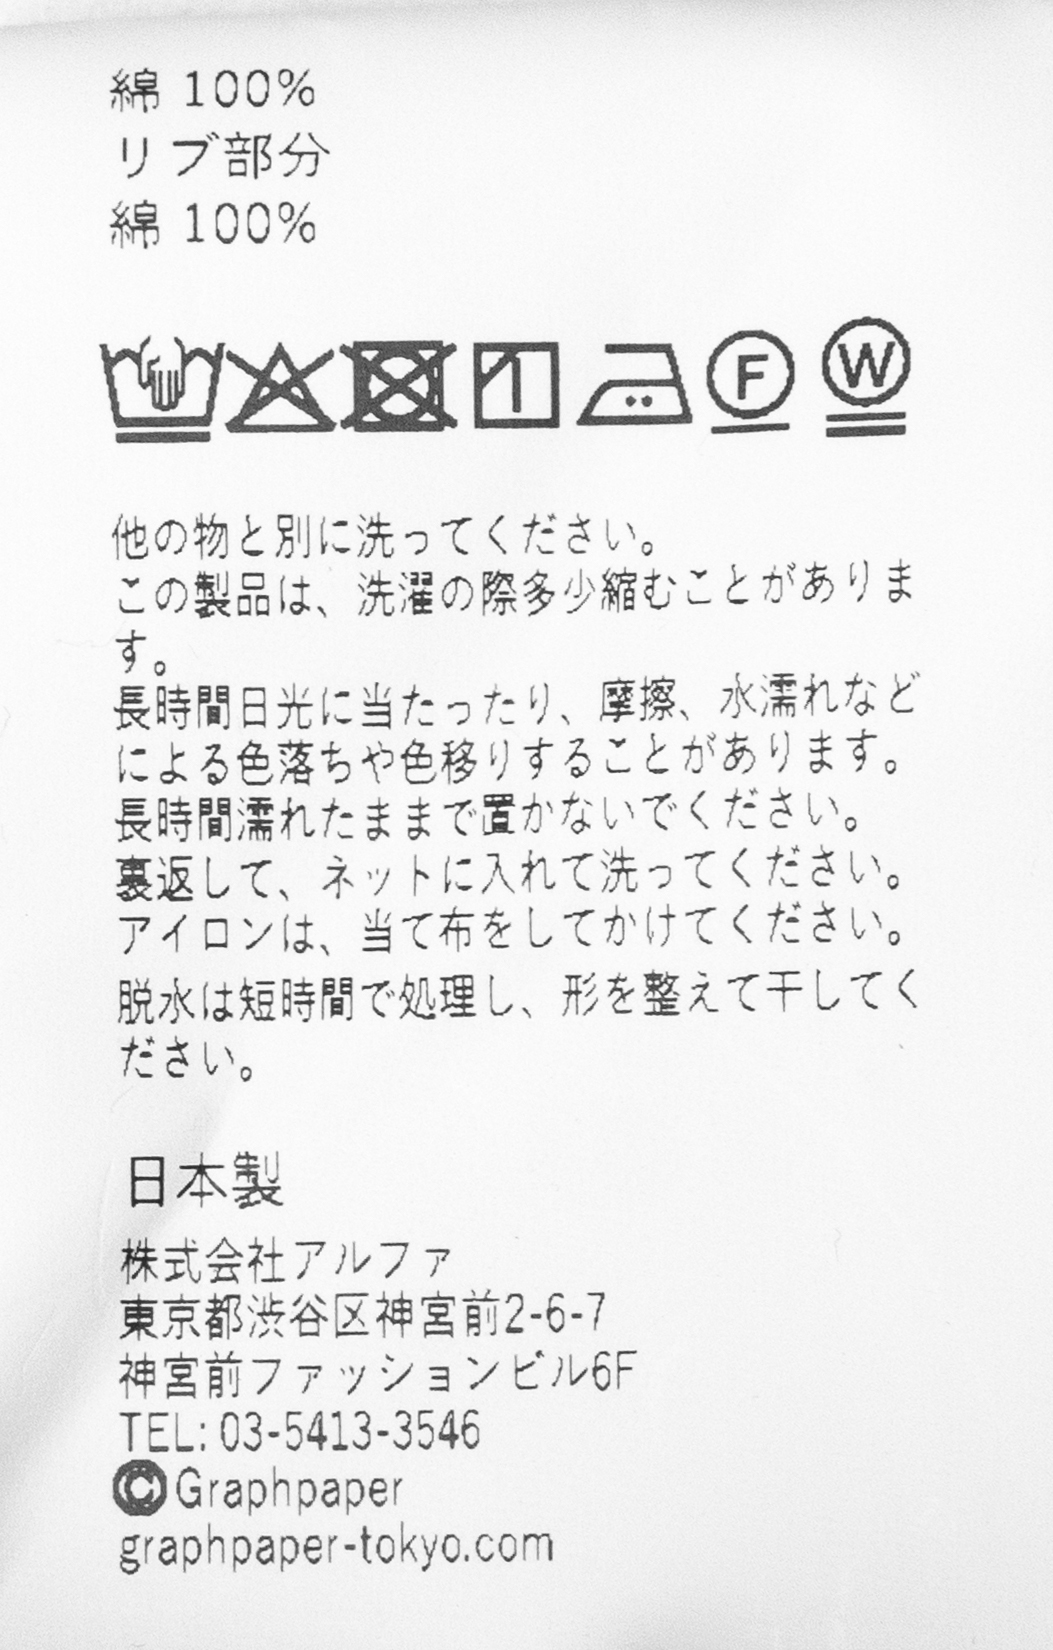 綿 100%
リブ部分
綿 100%
F W
他の物と別に洗ってください。
この製品は、洗濯の際多少縮むことがありま
す。
長時間日光に当たったり、摩擦、水濡れなど
による色落ちや色移りすることがあります。
長時間濡れたままで置かないでください。
裏返して、ネットに入れて洗ってください。
アイロンは、当て布をしてかけてください。
脱水は短時間で処理し、形を整えて干してく
ださい。
日本製
株式会社アルファ
東京都渋谷区神宮前2-6-7
神宮前ファッションビル6F
TEL: 03-5413-3546
©Graphpaper
graphpaper-tokyo.com